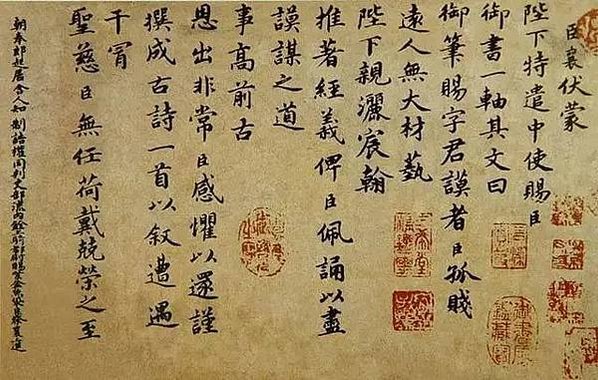 臣襄伏蒙
陛下特遣中使賜臣
御書一軸其文曰
御筆賜字君謨者臣孤賤
遠人無大材藝
陛下親灑宸翰
推著經義俾臣佩誦以盡
謨謀之道
事高前古
恩出非常臣感懼以還謹
撰成古詩一首以叙遭遇
干冒
聖慈臣無任荷戴兢榮之至
朝奉郎起居舍人知制誥權同判吏部流內銓 臣蔡襄上進